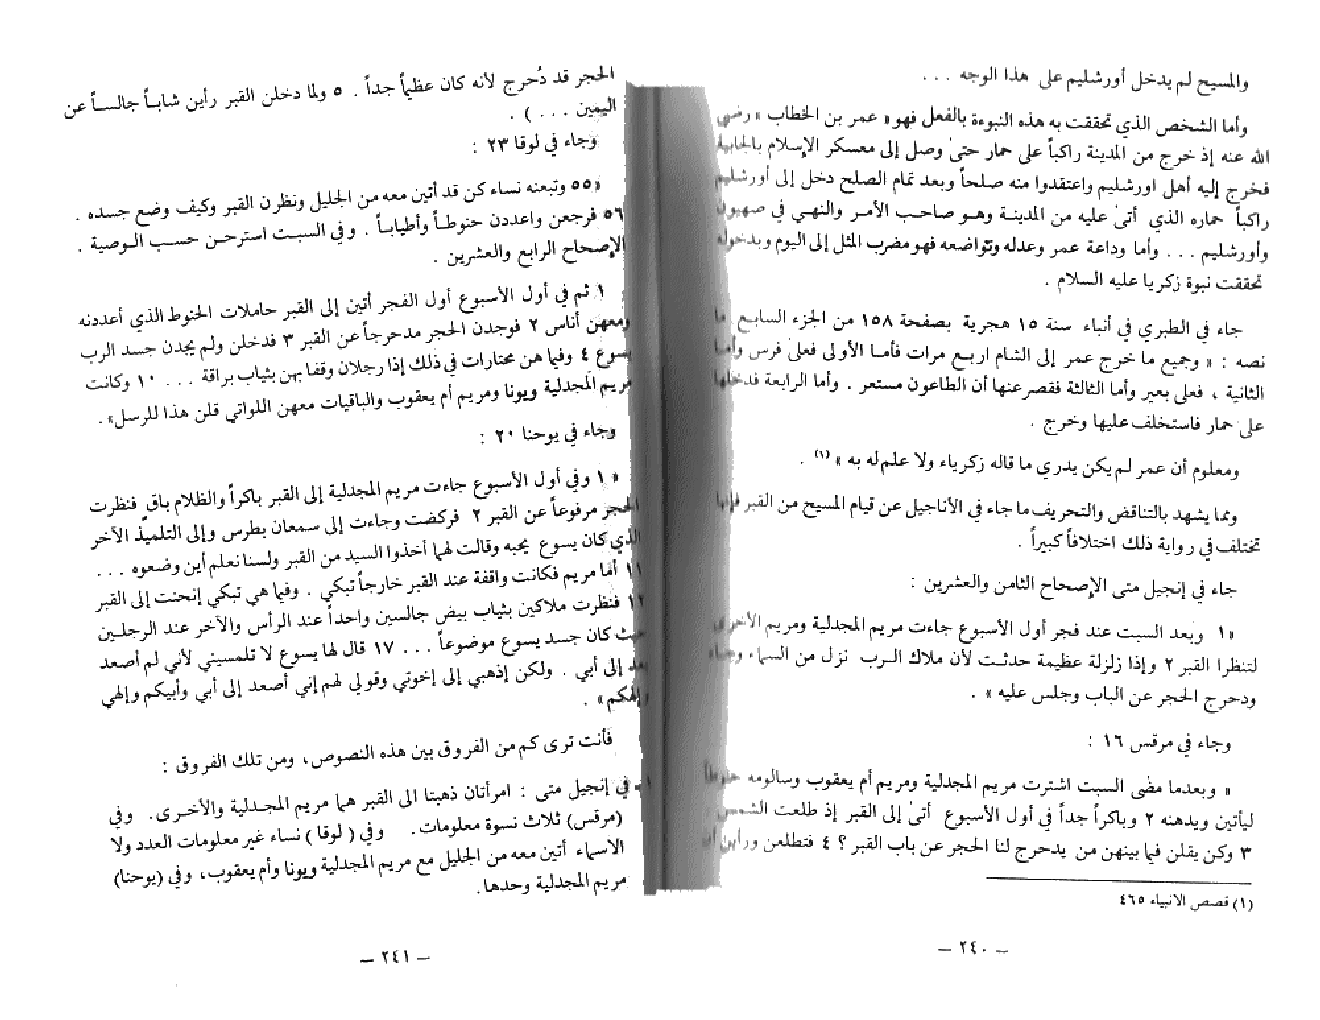 والمسيح لم يدخل أورشليم على هذا الوجه ...
وأما الشخص الذي تحققت به هذه النبوءة بالفعل فهو « عمر بن الخطاب » رضي
الله عنه إذ خرج من المدينة راكباً على حمار حتى وصل إلى معسكر الإسلام بالجابية
فخرج إليه أهل اورشليم واعتقدوا منه صلحاً وبعد تمام الصلح دخل إلى أورشليم
راكباً حماره الذي أتى عليه من المدينة وهو صاحب الأمر والنهي في صهيون
وأورشليم ... وأما وداعة عمر وعدله وتواضعه فهو مضرب المثل إلى اليوم وبدخوله
تحققت نبوة زكريا عليه السلام .
جاء في الطبري في أنباء سنة ١٥ هجرية بصفحة ١٥٨ من الجزء السابع ما
نصه : « وجميع ما خرج عمر إلى الشام اربع مرات فأما الأولى فعلى فرس وأما
الثانية ، فعلى بعير وأما الثالثة فقصر عنها أن الطاعون مستعر . وأما الرابعة فدخلها
على حمار فاستخلف عليها وخرج .
ومعلوم أن عمر لم يكن يدري ما قاله زكرياء ولا علم له به » (١) .
ومما يشهد بالتناقض والتحريف ما جاء في الأناجيل عن قيام المسيح من القبر فإنها
تختلف في رواية ذلك اختلافاً كبيراً .
جاء في إنجيل متى الإصحاح الثامن والعشرين :
« ١ وبعد السبت عند فجر أول الأسبوع جاءت مريم المجدلية ومريم الأخرى
لتنظرا القبر ٢ وإذا زلزلة عظيمة حدثت لأن ملاك الرب نزل من السماء وجاء
ودحرج الحجر عن الباب وجلس عليه » .
وجاء في مرقس ١٦ :
« وبعدما مضى السبت اشترت مريم المجدلية ومريم أم يعقوب وسالومه حنوطاً
ليأتين ويدهنه ٢ وباكراً جداً في أول الأسبوع أتى إلى القبر إذ طلعت الشمس
٣ وكن يقلن فيما بينهن من يدحرج لنا الحجر عن باب القبر ؟ ٤ فتطلعن ورأين أن
(١) قصص الانبياء ٤٦٥
– ٢٤٠ –
الحجر قد دُحرج لأنه كان عظيماً جداً . ٥ ولما دخلن القبر رأين شاباً جالساً عن
اليمين ... ) .
وجاء في لوقا ٢٣ :
« ٥٥ وتبعنه نساء كن قد أتين معه من الجليل ونظرن القبر وكيف وضع جسده .
٥٦ فرجعن واعددن حنوطاً وأطياباً . وفي السبت استرحن حسب الوصية .
الإصحاح الرابع والعشرين .
١ ثم في أول الأسبوع أول الفجر أتين إلى القبر حاملات الحنوط الذي أعددنه
ومعهن أناس ٢ فوجدن الحجر مدحرجاً عن القبر ٣ فدخلن ولم يجدن جسد الرب
يسوع ٤ وفيما هن محتارات في ذلك إذا رجلان وقفا بهن بثياب براقة ... ١٠ وكانت
مريم المجدلية ويونا ومريم أم يعقوب والباقيات معهن اللواتي قلن هذا للرسل» .
وجاء في يوحنا ٢٠ :
« ١ وفي أول الأسبوع جاءت مريم المجدلية إلى القبر باكراً والظلام باقٍ فنظرت
الحجر مرفوعاً عن القبر ٢ فركضت وجاءت إلى سمعان بطرس وإلى التلميذ الآخر
الذي كان يسوع يحبه وقالت لهما أخذوا السيد من القبر ولسنا نعلم أين وضعوه ...
١١ أما مريم فكانت واقفة عند القبر خارجاً تبكي . وفيما هي تبكي إنحنت إلى القبر
١٢ فنظرت ملاكين بثياب بيض جالسين واحداً عند الرأس والآخر عند الرجلين
حيث كان جسد يسوع موضوعاً ... ١٧ قال لها يسوع لا تلمسيني لأني لم أصعد
بعد إلى أبي . ولكن إذهبي إلى إخوتي وقولي لهم إني أصعد إلى أبي وأبيكم وإلهي
وإلهكم» .
فأنت ترى كم من الفروق بين هذه النصوص، ومن تلك الفروق :
١ـ في إنجيل متى : امرأتان ذهبتا الى القبر هما مريم المجدلية والأخرى. وفي
(مرقس) ثلاث نسوة معلومات. وفي ( لوقا ) نساء غير معلومات العدد ولا
الأسماء أتين معه من الجليل مع مريم المجدلية ويونا وأم يعقوب، وفي (يوحنا)
مريم المجدلية وحدها.
– ٢٤١ –